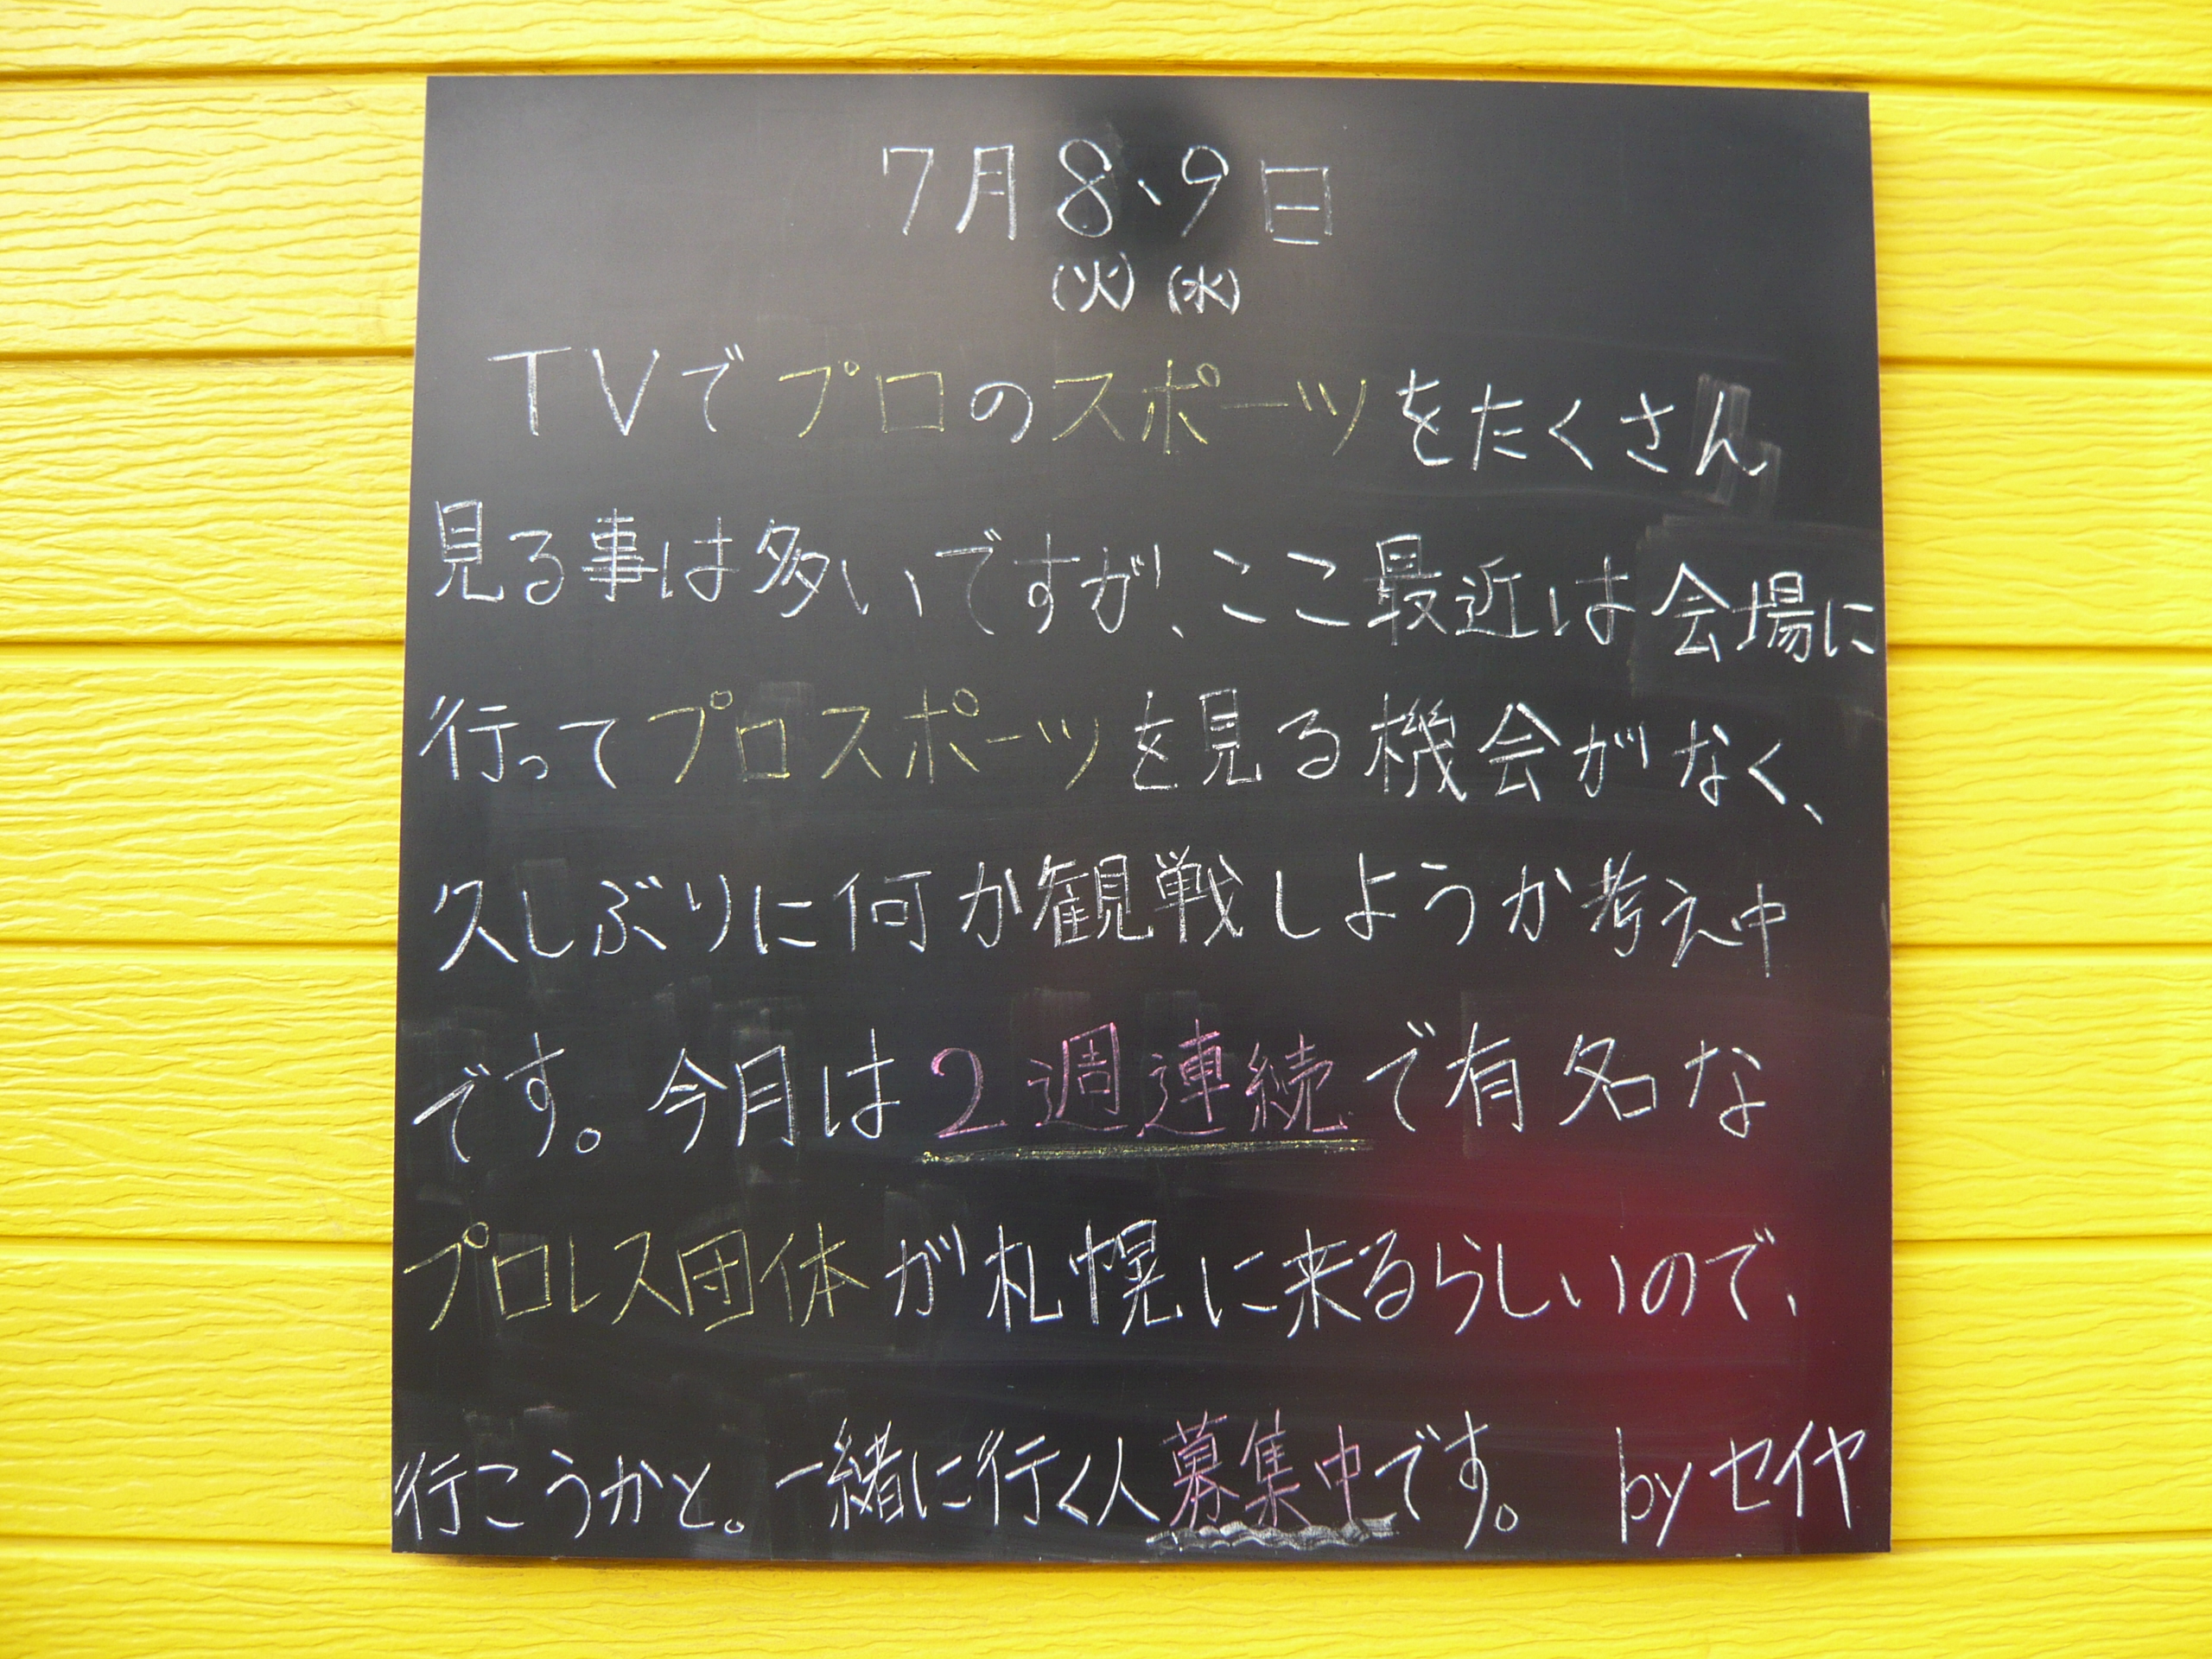 7月8、9日
(火)(水)
TVでプロのスポーツをたくさん
見る事は多いですが、ここ最近は会場に
行ってプロスポーツを見る機会がなく、
久しぶりに何か観戦しようか考え中
です。今月は2週連続で有名な
プロレス団体が札幌に来るらしいので、
行こうかと。一緒に行く人募集中です。 byセイヤ